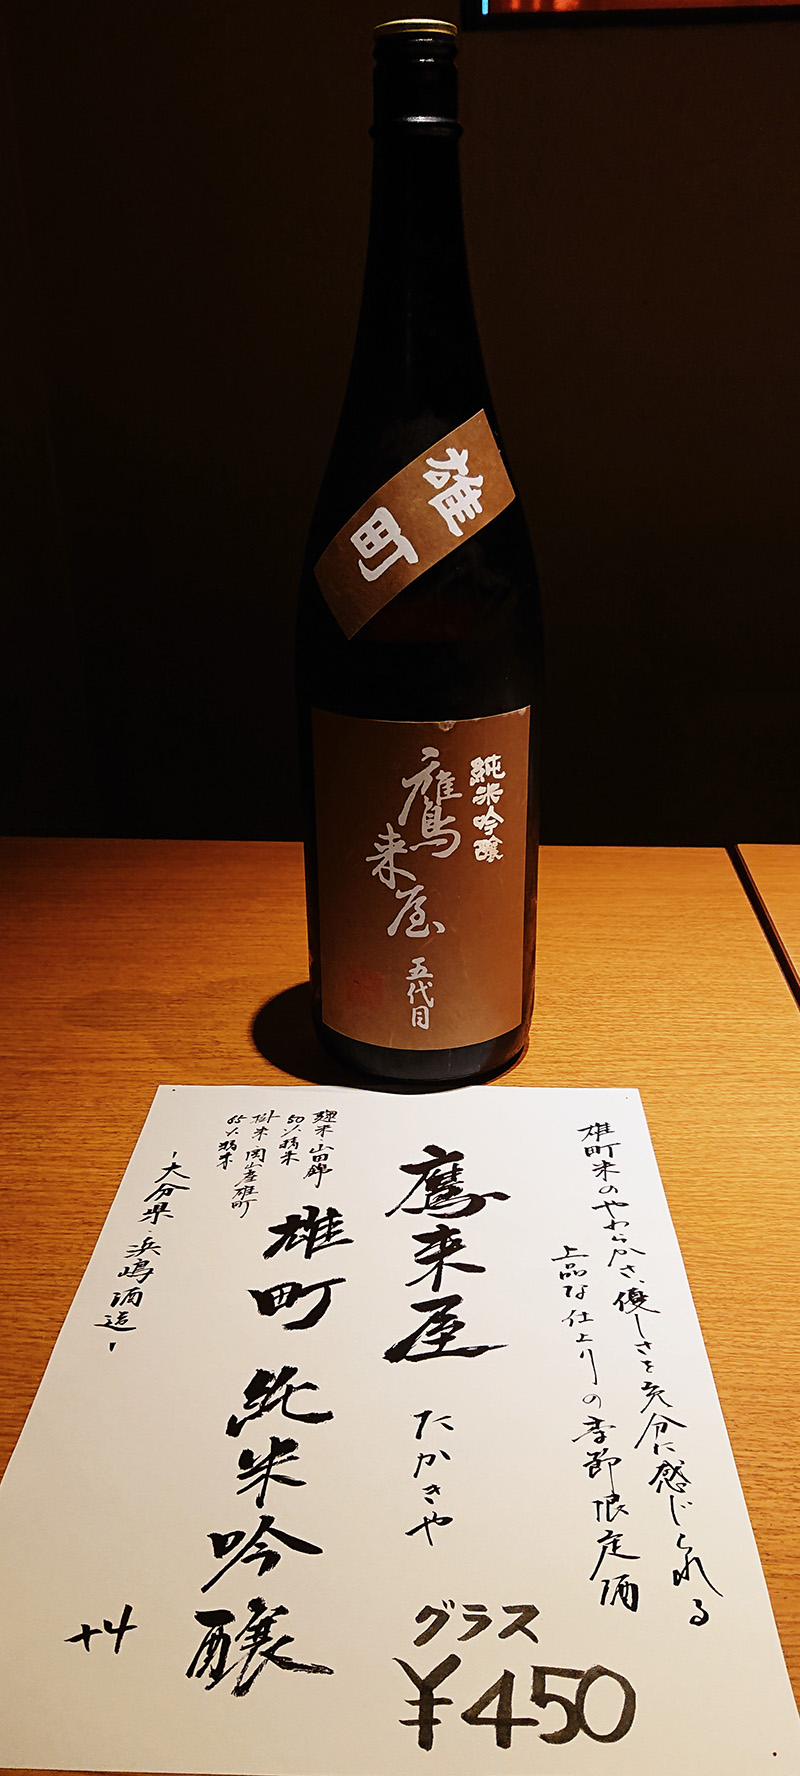 雄町
純米吟醸
鷹来屋
五代目
雄町米のやわらかさ、優しさを充分に感じられる
上品な仕上りの季節限定酒
鷹来屋 たかきや
グラス
¥450
雄町 純米吟醸
麹米・山田錦
50%精米
掛米・岡山産雄町
65%精米
-大分県・浜嶋酒造-
+4